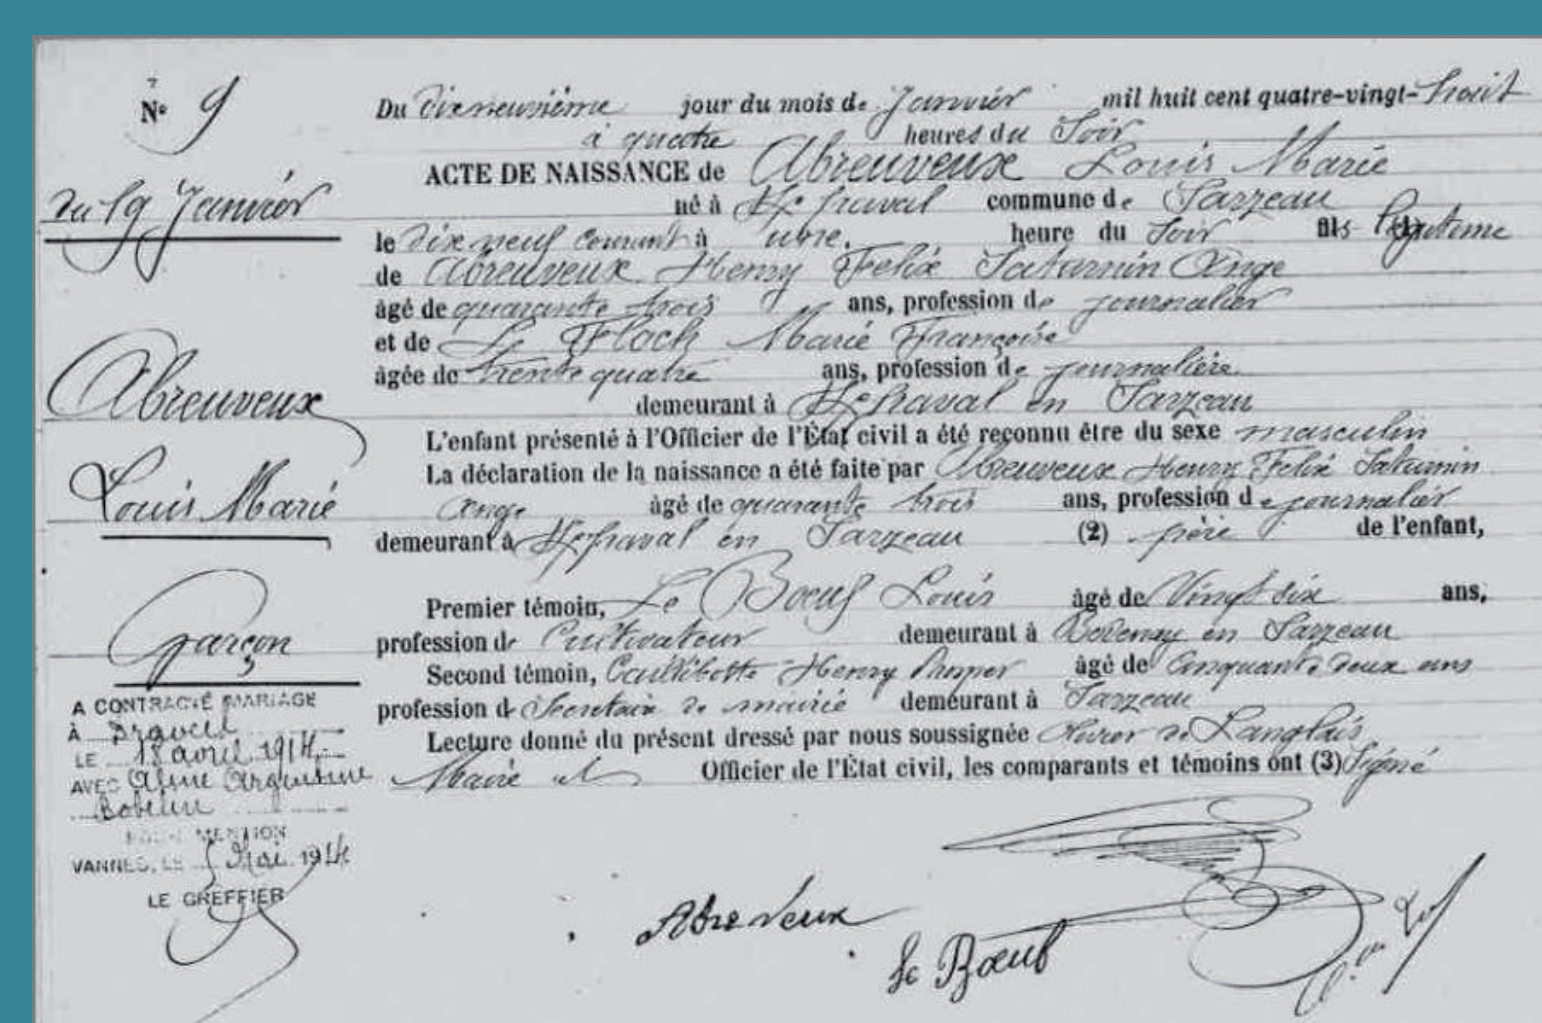 N° 9
du 19 Janvier
Abreuveux
Louis Marie
Garçon
A CONTRACTÉ MARIAGE
À Draveil
LE 18 avril 1914
AVEC Argentine
POUR MENTION
VANNES, LE 5 Mai 1914
LE GREFFIER
Du dix neuvième jour du mois de Janvier mil huit cent quatre-vingt-huit
à quatre heures du Soir
ACTE DE NAISSANCE de Abreuveux Louis Marie
né à commune de Sarzeau
le dix neuf courant à une heure du Soir fils légitime
de Abreuveux Henry Felix Saturnin Ange
âgé de quarante trois ans, profession de journalier
et de Le Floch Marie Françoise
âgée de trente quatre ans, profession de journalière
demeurant à en Sarzeau
L'enfant présenté à l'Officier de l'État civil a été reconnu être du sexe masculin
La déclaration de la naissance a été faite par Abreuveux Henry Felix Saturnin
Ange âgé de quarante trois ans, profession de journalier
demeurant à en Sarzeau (2) père de l'enfant,
Premier témoin, Le Bœuf Louis âgé de Vingt six ans,
profession de Cultivateur demeurant à en Sarzeau
Second témoin, Caillibotte Henry Prosper âgé de Cinquante deux ans
profession de Secrétaire de mairie demeurant à Sarzeau
Lecture donné du présent dressé par nous soussignée de Langlais
Maire Officier de l'État civil, les comparants et témoins ont (3) Signé
Abreveux
Le Bœuf